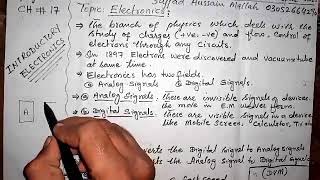 Sajjad Hussain Mallah 0305266
CH # 17 Topic: Electronics:
INTRODUCTORY ELECTRONICS
→ The branch of physics which deals with the
study of charges (+ve, -ve) and flow. Control of
electrons through any Circuits.
→ In 1897 Electrons were discovered and Vacuum tube
at same time.
→ Electronics has two fields.
Analog Signals Digital Signals.
→ Analog Signals: These are invisible signals of devices
the move in E.M waves form.
→ Digital Signals: these are visible signals in a devices
like Mobile Screen, Calculator,
A
the Digital Signal to Analog signals
the Analog Signal to Digital signals
(DVM)